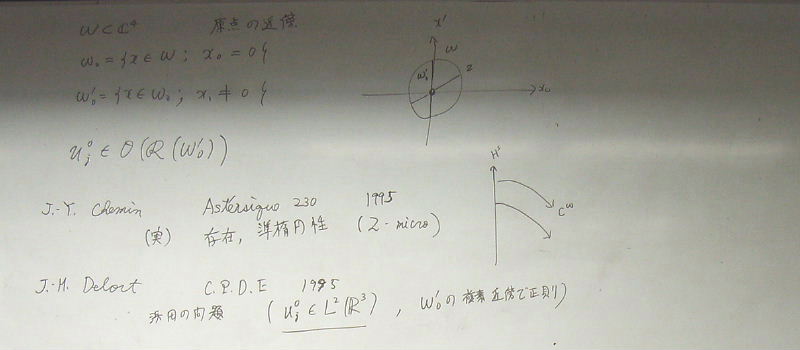 ω ⊂ ℂ⁴ 原点の近傍
ω₀ = {x ∈ ω ; x₀ = 0}
ω₀' = {x ∈ ω₀ ; x₁ ≠ 0}
u_j^0 ∈ O(R(ω₀'))
x'
ω
ω₀'
Z
x₀
J.-Y. Chemin Astérisque 230 1995
(実) 存在, 準楕円性 (Z-micro)
H^s
C^ω
J.-M. Delort C.P.D.E 1995
の問題 (u_j^0 ∈ L²(ℝ³), ω₀'の複素近傍で正則)